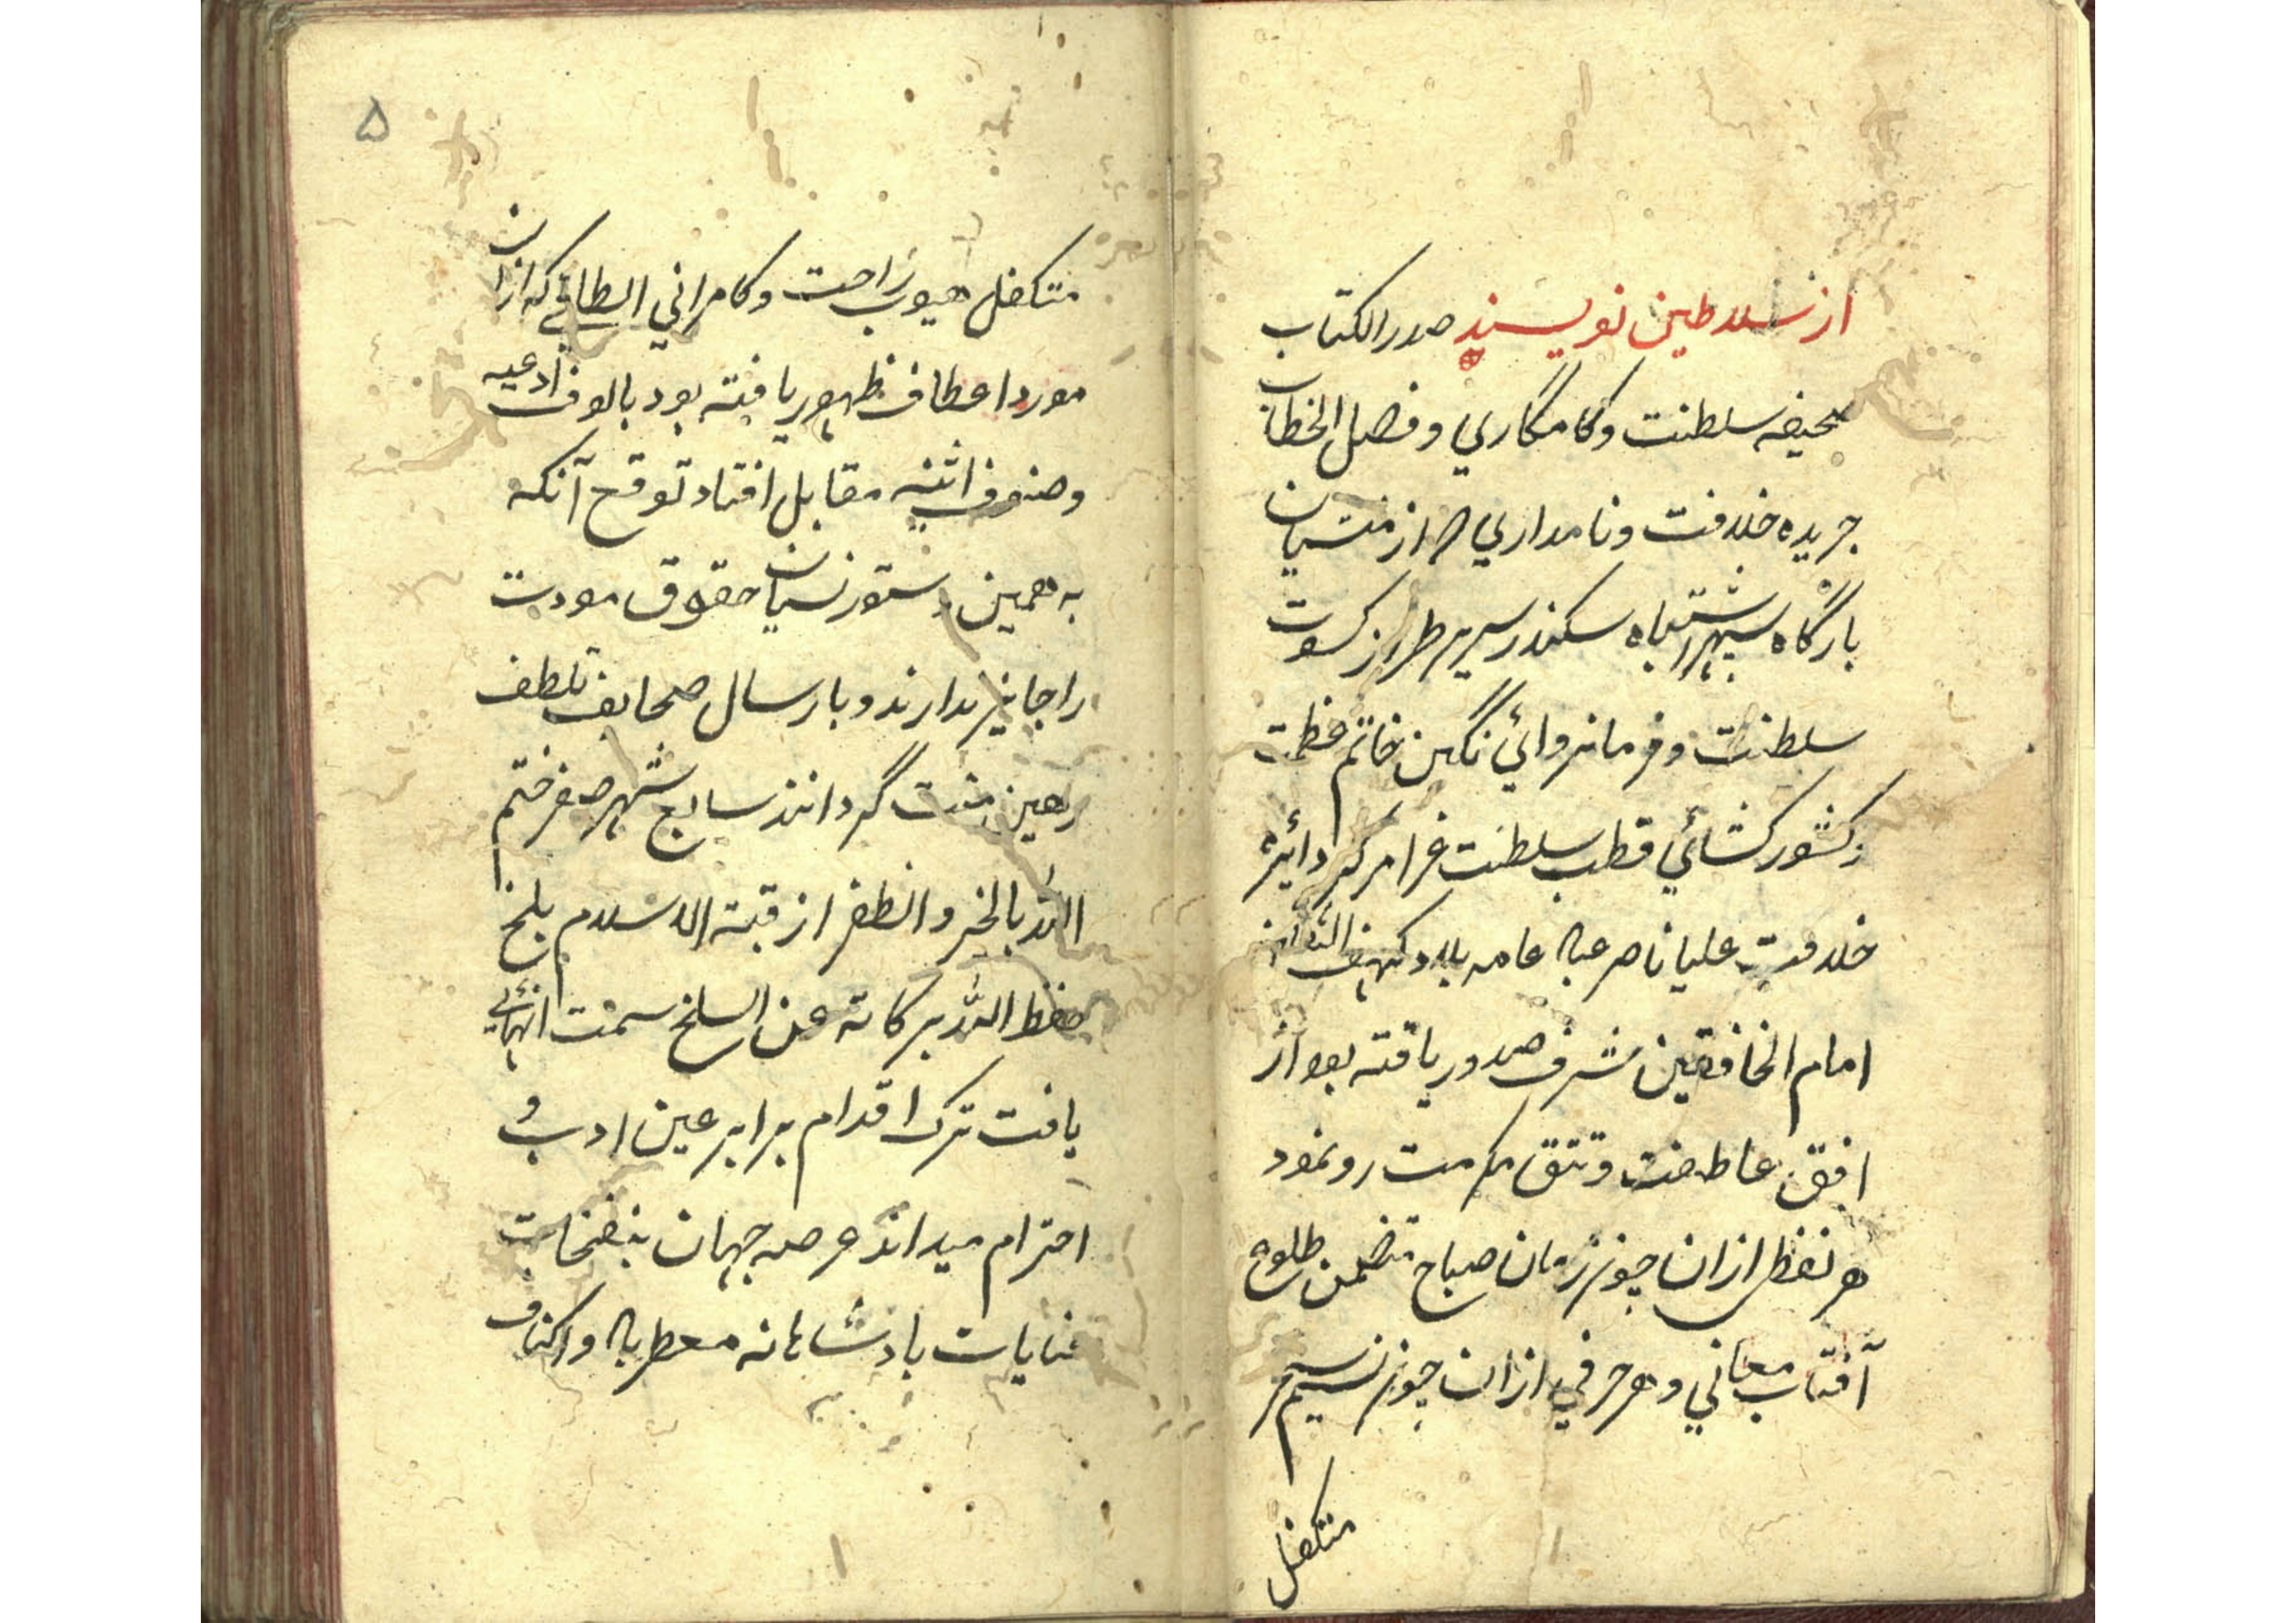 از سلاطین نویسند صدر الکتاب
صحیفه سلطنت وکامکاری و فصل الخطاب
جریده خلافت و نامداری که از منشیان
بارگاه سپهر اشتباه سکندر سریر طراز کسوت
سلطنت و فرمانروائی نگین خاتم عظمت
و کشور کشائی قطب سلطنت غرا مرکز دایره
خلافت علیا ناصر عباد عامه بلاد کهف الثقلین
امام الخافقین شرف صدور یافته بود از
افق عاطفت و تتق مکرمت رو نمود
هر نقطی ازان چون زمان صباح متضمن طلوع
آفتاب معانی و هر حرفی ازان چون نسیم سحر
متکفل
۵
متکفل هبوب راحت و کامرانی الطافی که ازان
مورد اعطاف ظهور یافته بود بالوف ادعیه
و صنوف اثنیه مقابل افتاد توقع آنکه
به همین دستور نسیان حقوق مودت
را جایز ندارند و بارسال صحایف تلطف
رهین منت گردانند سابع شهر صفر ختم
الله بالخیر والظفر از قبة الاسلام بلخ
حفظ الله برکاته عن السلخ سمت انهائی
یافت ترک اقدام برابر عین ادب و
احترام میداند عرصه جهان بنفحات
عنایات بادشاهانه معطر باد و اکناف